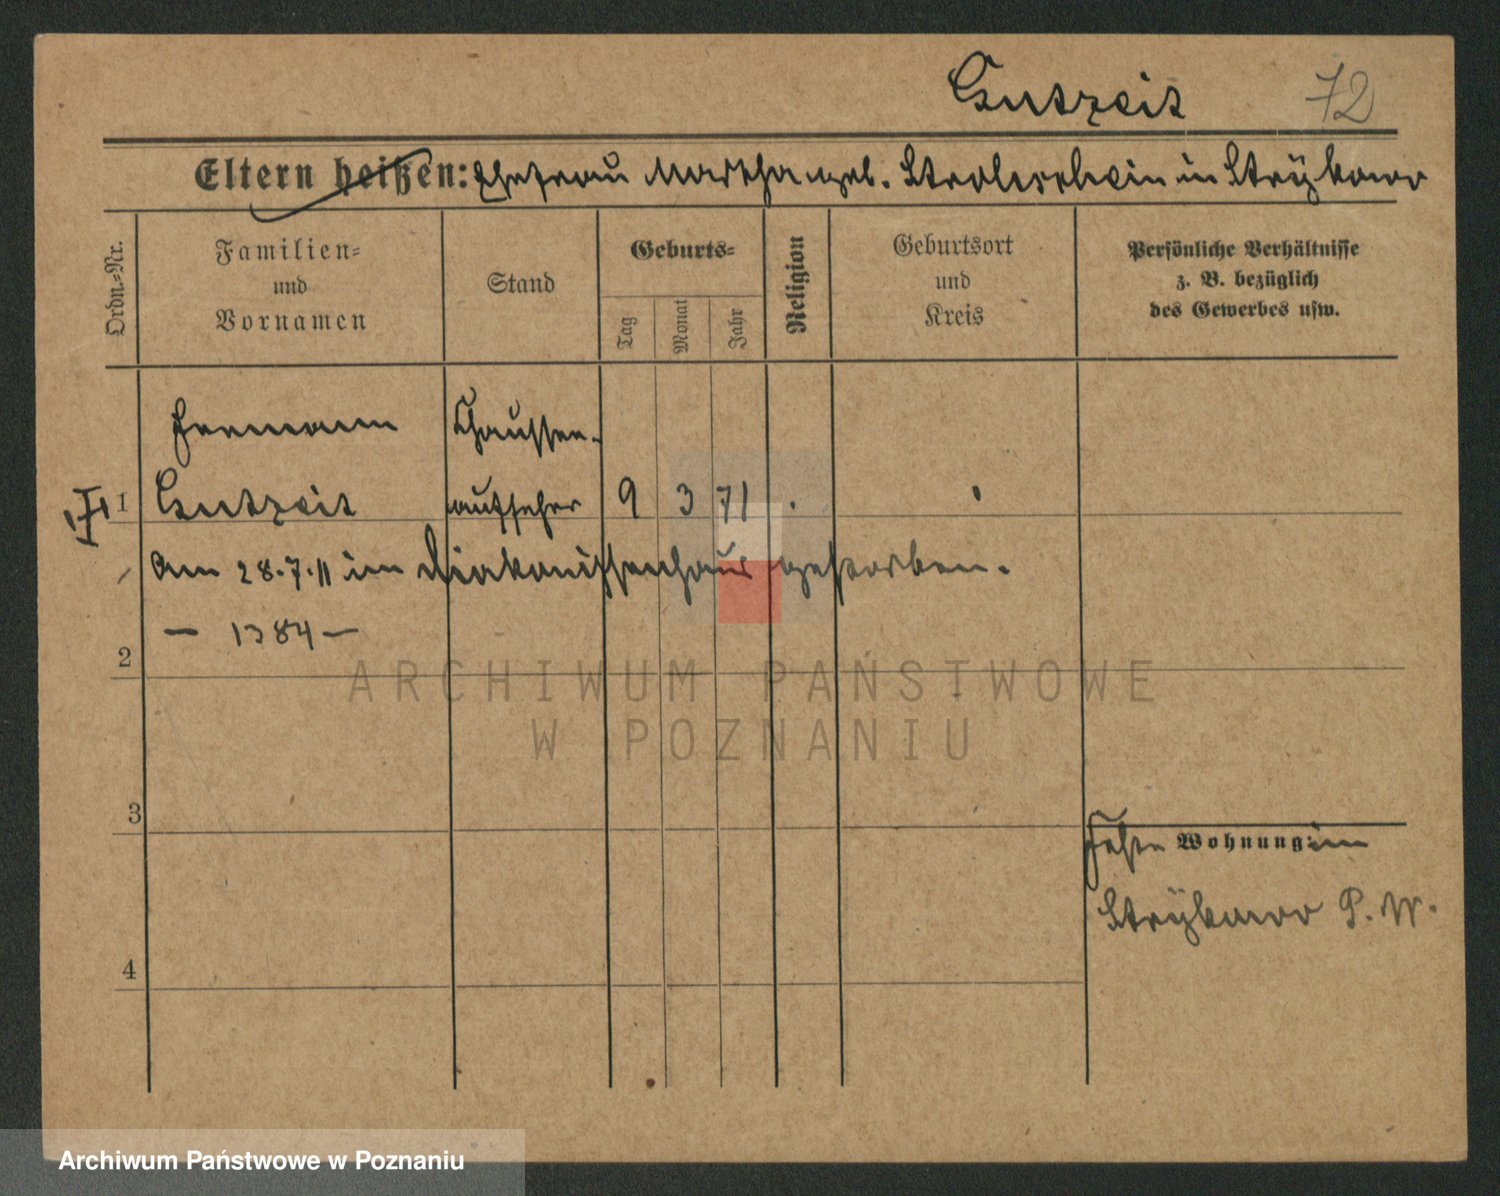 Gutzeit 72
Eltern heißen: Ehefrau Martha geb. in Strÿkowo
Ordn.-Nr. Familien- und Vornamen Stand Geburts- Tag Monat Jahr Religion Geburtsort und Kreis Persönliche Verhältnisse z. B. bezüglich des Gewerbes usw.
Hermann Chaussee-
1 Gutzeit aufseher 9 3 71
Am 28.7.11 im Diakonissenhaus gestorben.
— 1384 —
2
ARCHIWUM PAŃSTWOWE
W POZNANIU
3
Feste Wohnung: in
Strÿkowo P. W.
4
Archiwum Państwowe w Poznaniu